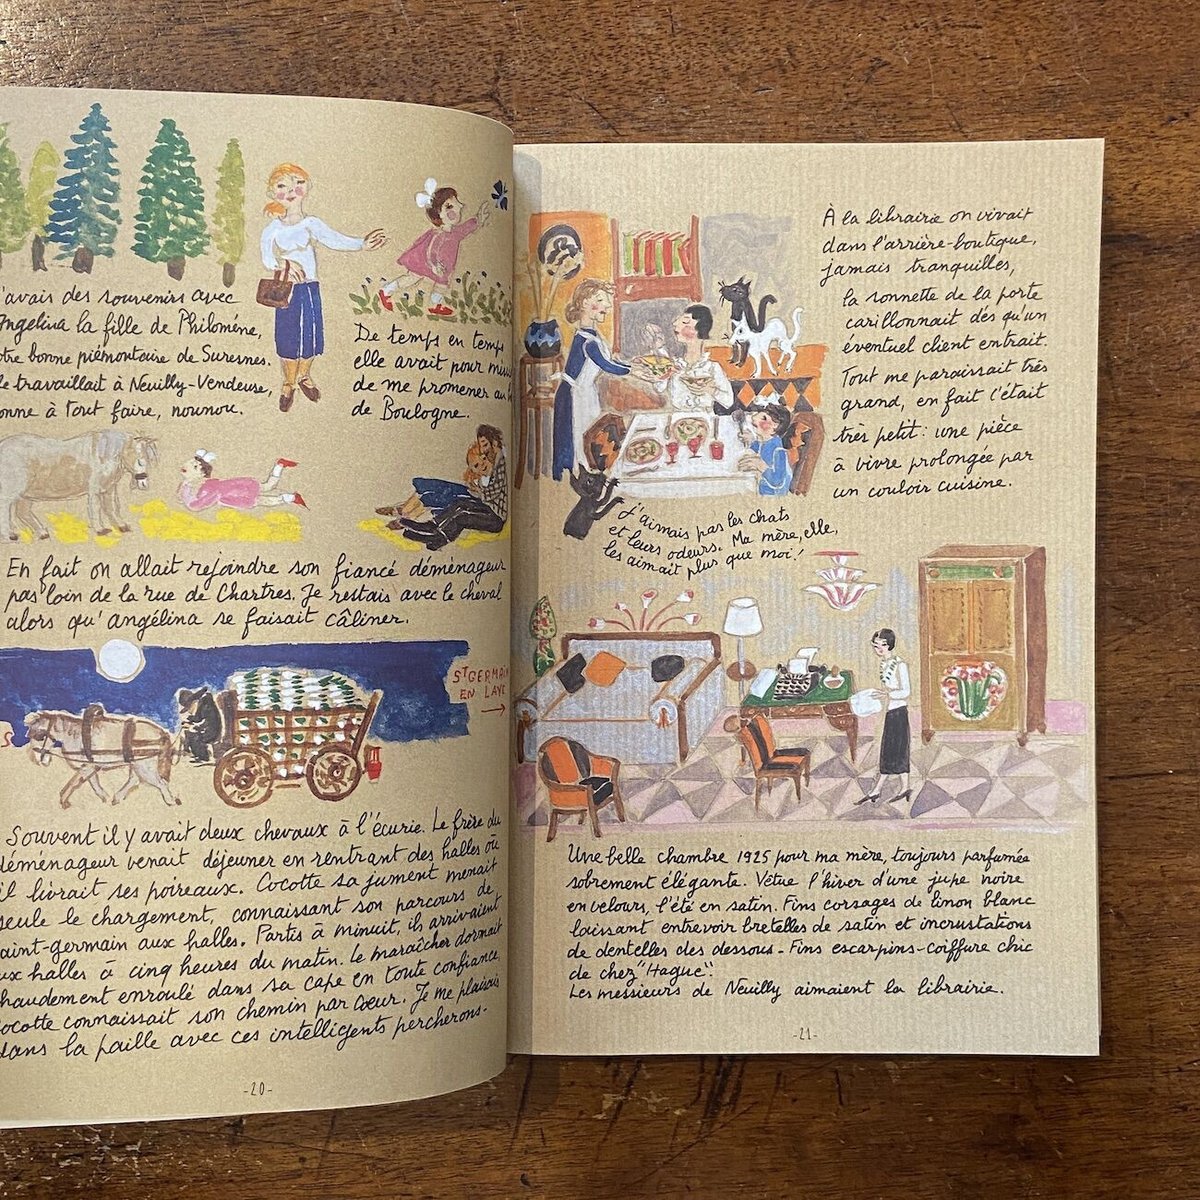 'avais des souvenirs avec
Angelina la fille de Philomène,
otre bonne piémontaise de Suresnes.
le travaillait à Neuilly-Vendeuse,
onne à tout faire, nounou.
De temps en temps
elle avait pour
de me promener au
de Boulogne.
En fait on allait rejoindre son fiancé déménageur
pas loin de la rue de Chartres. Je restais avec le cheval
alors qu'angélina se faisait câliner.
ST GERMAIN
EN LAYE
Souvent il y avait deux chevaux à l'écurie. Le frère du
déménageur venait déjeuner en rentrant des halles où
il livrait ses poireaux. Cocotte sa jument menait
seule le chargement, connaissant son parcours de
saint-germain aux halles. Partis à minuit, ils arrivaient
ux halles à cinq heures du matin. Le maraîcher dormait
haudement enroulé dans sa cape en toute confiance,
Cocotte connaissait son chemin par cœur. Je me plaisais
dans la paille avec ces intelligents percherons.
-20-
À la librairie on vivait
dans l'arrière-boutique,
jamais tranquilles,
la sonnette de la porte
carillonnait dès qu'un
éventuel client entrait.
Tout me paraissait très
grand, en fait c'était
très petit: une pièce
à vivre prolongée par
un couloir cuisine.
J'aimais pas les chats
et leurs odeurs. Ma mère, elle,
les aimait plus que moi!
Une belle chambre 1925 pour ma mère, toujours parfumée
sobrement élégante. Vêtue l'hiver d'une jupe noire
en velours, l'été en satin. Fins corsages de linon blanc
laissant entrevoir bretelles de satin et incrustations
de dentelles des dessous - Fins escarpins-coiffure chic
de chez "Hague".
Les messieurs de Neuilly aimaient la librairie.
-21-